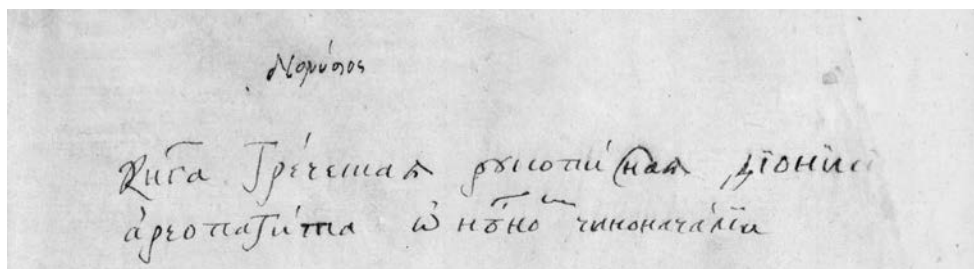 Διονύσιος
Книга Греческая рукописная Дїонисїа
ареопагита ѡ нбⷭномъ чиноначалїи